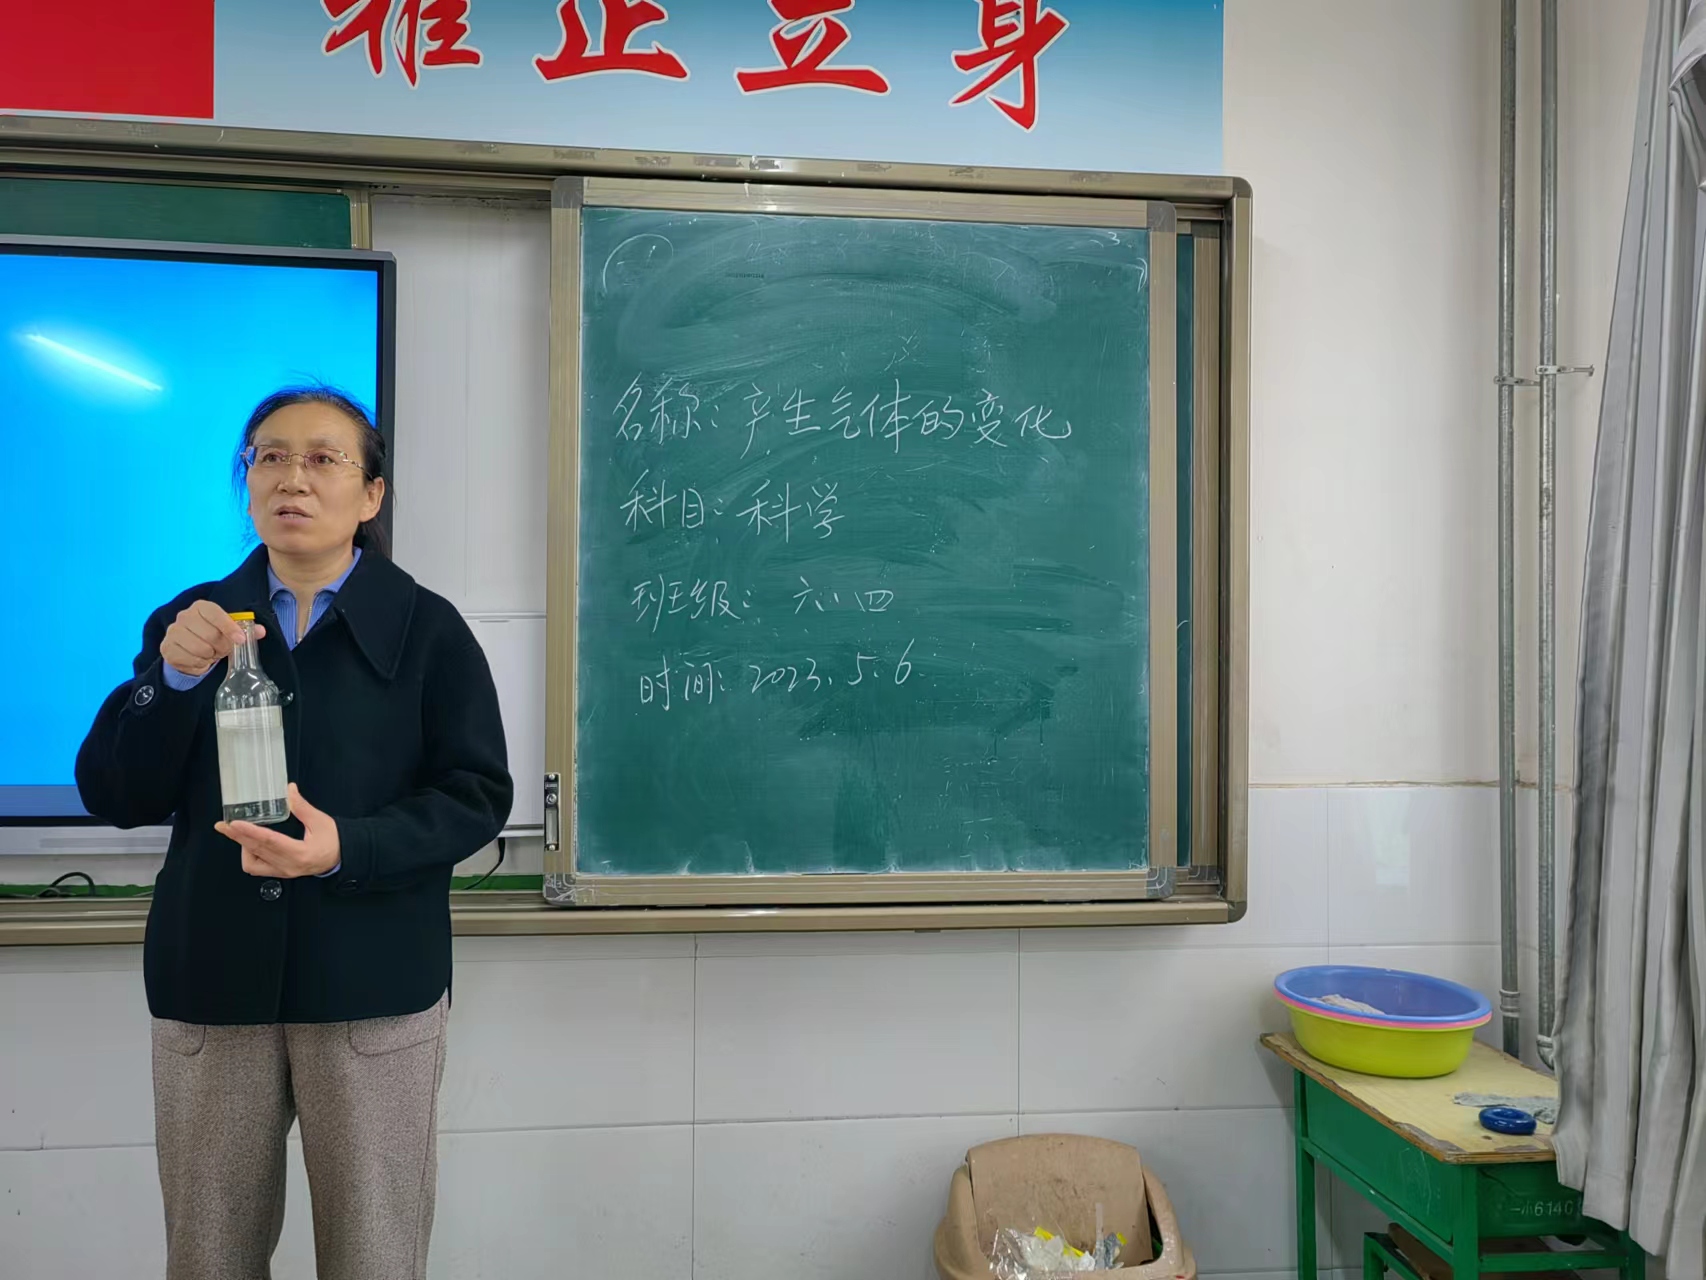 雅正立身
名称：产生气体的变化
科目：科学
班级：六.四
时间：2023.5.6
一小6140